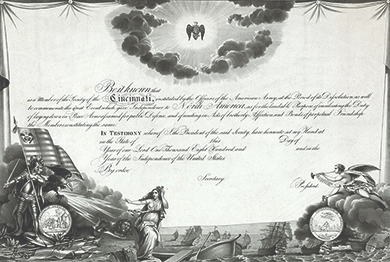 Be it known that
is a Member of the Society of the Cincinnati, instituted by the Officers of the American Army, at the Period of its Dissolution, as well
to commemorate the great Event which gave Independence to North America, as for the laudable Purpose of inculcating the Duty
of laying down in Peace Arms assumed for public Defence, and of uniting in Acts of brotherly Affection and Bonds of perpetual Friendship
the Members constituting the same.
IN TESTIMONY whereof I, the President of the said Society, have hereunto set my Hand at
in the State of this Day of
Year of our Lord One Thousand Eight Hundred and and in the
Year of the Independence of the United States.
By order,
Secretary. President.